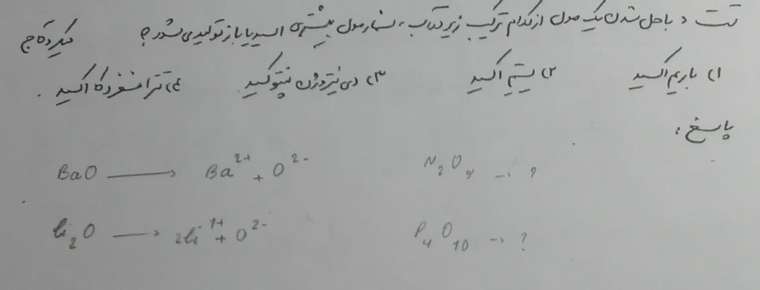 تست: با حل شدن یک مول از کدام ترکیب زیر در آب، شمار مول بیشتری اسید یا باز تولید می‌شود؟
۱) باریم اکسید ۲) لیتیم اکسید ۳) دی نیتروژن پنتوکسید ۴) تترا فسفر دکا اکسید.
پاسخ:
BaO → Ba²⁺ + O²⁻ N₂O₅ → ?
Li₂O → 2Li¹⁺ + O²⁻ P₄O₁₀ → ?